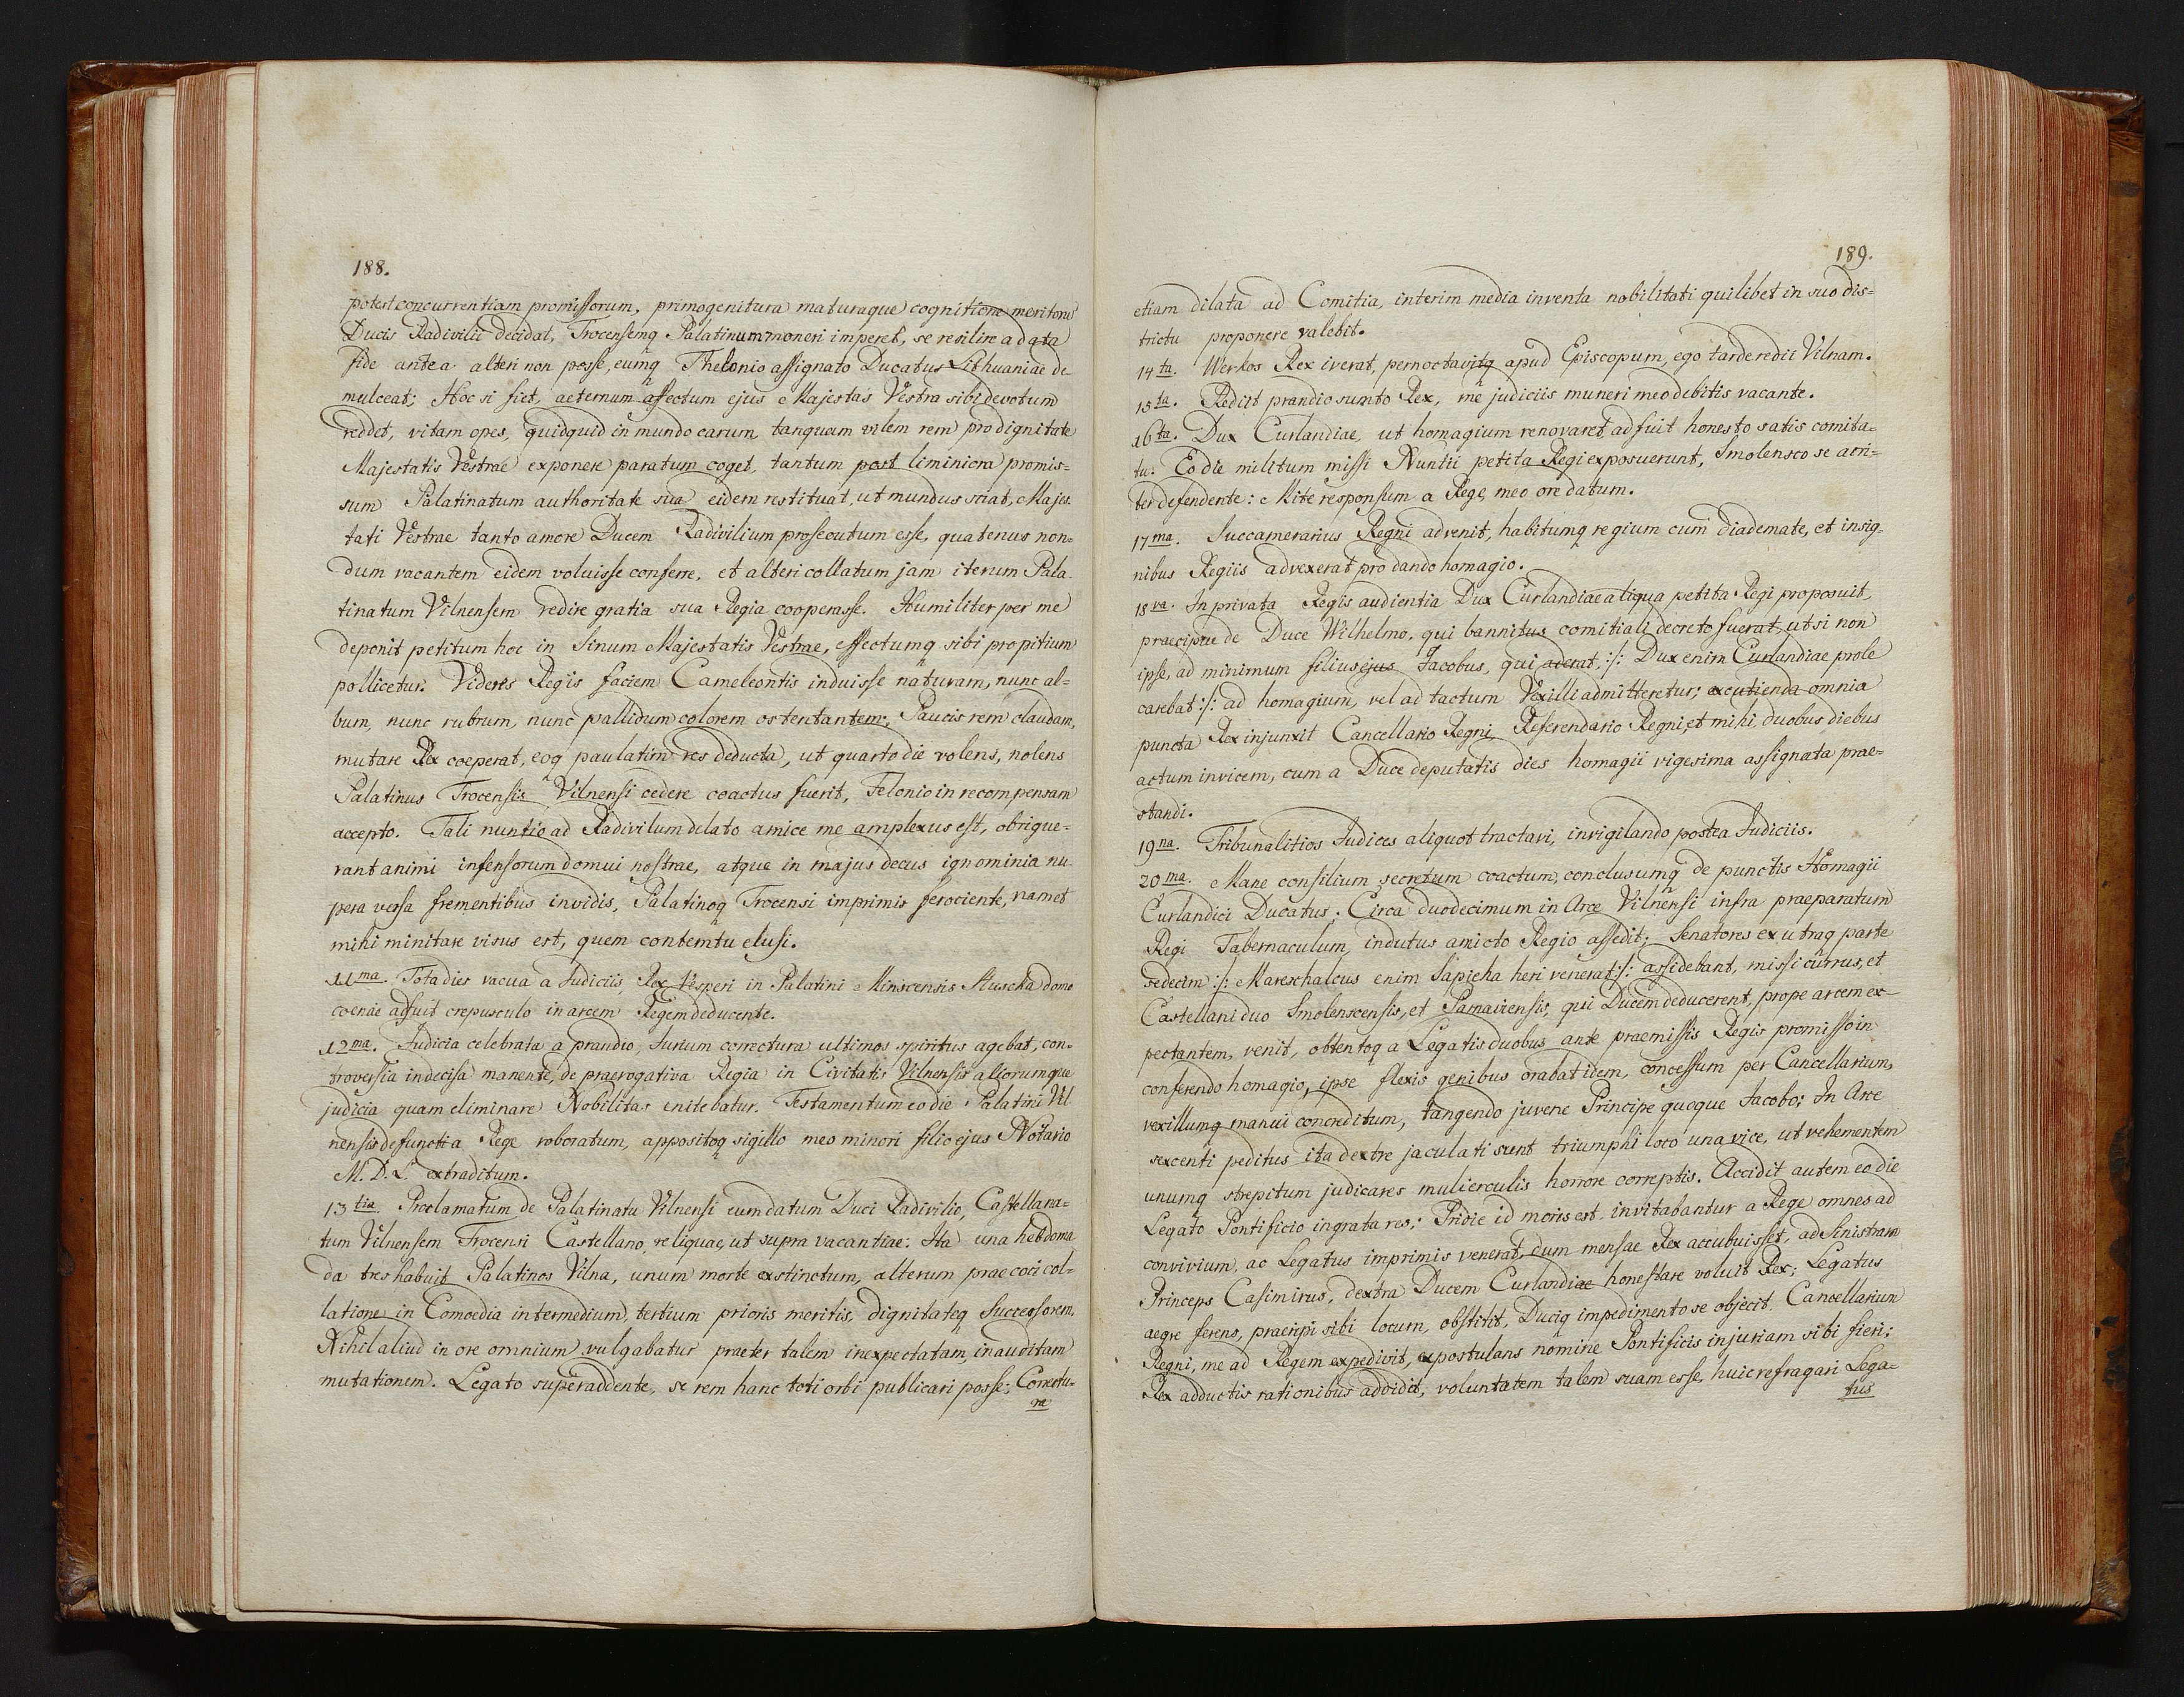 188.
potest concurrentiam promissorum, primogenitura maturaque cognitione meritorum
Ducis Radivilii decidat, Trocensemq Palatinum moneri imperet, se resilire a data
fide antea alteri non posse, eumq Thelonio assignato Ducatus Lithuaniae de
mulceat; Hoc si fiet, aeternum affectum ejus Majestas Vestra sibi devotum
reddet, vitam opes, quidquid in mundo carum tanquam vilem rem pro dignitate
Majestatis Vestrae exponere paratum coget, tantum post liminiora promis=
sum Palatinatum authoritate sua eidem restituat, ut mundus sciat, Majes
tati Vestrae tanto amore Ducem Radivilium prosecutum esse, quatenus non=
dum vacantem eidem voluisse conferre, et alteri collatum jam iterum Pala
tinatum Vilnensem redire gratia sua Regia cooperasse. Humiliter per me
deponit petitum hoc in Sinum Majestatis Vestrae, effectumq sibi propitium
pollicetur. Videres Regis faciem Cameleontis induisse naturam, nunc al=
bum, nunc rubrum, nunc pallidum colorem ostentantem; Paucis rem claudam,
mutare Rex coeperat, eoq paulatim res deducta, ut quarto die volens, nolens
Palatinus Trocensis Vilnensi cedere coactus fuerit, Telonio in recompensam
accepto. Tali nuntio ad Radivilum delato amice me amplexus est, obrigue=
rant animi infensorum domui nostrae, atque in majus decus ignominia nu
pera versa frementibus invidis, Palatinoq Trocensi imprimis ferociente, namet
mihi minitare visus est, quem contemtu elusi.
11ma. Tota dies vacua a Judiciis, Rex Vesperi in Palatini Minscensis Sluscka domo
coenae adfuit crepusculo in arcem Regem deducente.
12ma. Judicia celebrata a prandio, Jurium correctura ultimos spiritus agebat, con=
troversia indecisa manente, de praerogativa Regia in Civitatis Vilnensis aliorumque
judicia quam eliminare Nobilitas enitebatur. Testamentum eo die Palatini Vil
nensis defuncti a Rege roboratum, appositoq sigillo meo minori filio ejus Notario
M. D. L. extraditum.
13tia. Proclamatum de Palatinatu Vilnensi eum datum Duci Radivilio, Castellana=
tum Vilnensem Trocensi Castellano, reliquae, ut supra vacantiae. Ita una hebdoma
da tres habuit Palatinos Vilna, unum morte exstinctum, alterum praecoci col=
latione in Comoedia intermedium, tertium prioris meritis, dignitateq Successorem.
Nihil aliud in ore omnium vulgabatur praeter talem inexpectatam, inauditam
mutationem. Legato superaddente, se rem hanc toti orbi publicari posse; Correctu=
ra
189.
etiam dilata ad Comitia, interim media inventa nobilitati quilibet in suo dis=
trictu proponere valebit.
14ta. Werkos Rex iverat, pernoctavitq apud Episcopum, ego tarde redii Vilnam.
15ta. Rediit prandio sumto Rex, me judiciis muneri meo debitis vacante.
16ta. Dux Curlandiae, ut homagium renovaret, adfuit honesto satis comita=
tu. Eo die militum missi Nuntii petita Regi exposuerunt, Smolensco se acri=
ter defendente: Mite responsum a Rege, meo ore datum.
17ma. Succamerarius Regni advenit, habitumq regium cum diademate, et insig=
nibus Regiis advexerat pro dando homagio.
18va. In privata Regis audientia Dux Curlandiae aliqua petita Regi proposuit,
praecipue de Duce Wilhelmo, qui bannitus comitiali decreto fuerat, ut si non
ipse, ad minimum filius ejus Jacobus, qui aderat :/: Dux enim Curlandiae prole
carebat :/: ad homagium, vel ad tactum Vexilli admitteretur; excutienda omnia
puncta Rex injunxit Cancellario Regni, Referendario Regni, et mihi duobus diebus
actum invicem, cum a Duce deputatis dies homagii vigesima assignata prae=
standi.
19na. Tribunalitios Judices aliquot tractavi, invigilando postea Judiciis.
20ma. Mane consilium secretum coactum, conclusumq de punctis Homagii
Curlandici Ducatus; Circa duodecimum in Arce Vilnensi infra praeparatum
Regi Tabernaculum, indutus amicto Regio assedit; Senatores ex utraq parte
sedecim :/: Mareschalcus enim Sapieha heri venerat :/: assidebant, missi currus, et
Castellani duo Smolenscensis, et Parnaviensis, qui Ducem deducerent, prope arcem ex=
pectantem, venit, obtentoq a Legatis duobus ante praemissis Regis promisso in
conferendo homagio, ipse flexis genibus orabat idem, concessum per Cancellarium,
vexillumq manui concreditum, tangendo juvene Principe quoque Jacobo; In Arce
sexcenti peditus ita dextre jaculati sunt triumphi loco una vice, ut vehementem
unumq strepitum judicares mulierculis horrore correptis. Accidit autem eo die
Legato Pontificio ingrata res; Pridie id moris est invitabantur a Rege omnes ad
convivium, ac Legatus imprimis venerat, dum mensae Rex accubuisset, ad Sinistram
Princeps Casimirus, dextra Ducem Curlandiae honestare voluit Rex; Legatus
aegre ferens, praeripi sibi locum, obstitit, Duciq impedimento se objecit. Cancellarium
Regni, me ad Regem expedivit, expostulans nomine Pontificis injuriam sibi fieri;
Rex adductis rationibus addidit, voluntatem talem suam esse, huic refragari Lega=
tus